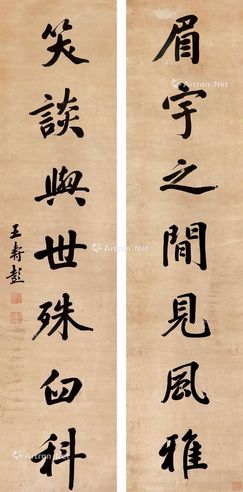 眉宇之間見風雅
笑談與世殊臼科
王壽彭
Artron.Net
Artron.Net
Artron.Net
Artron.Net